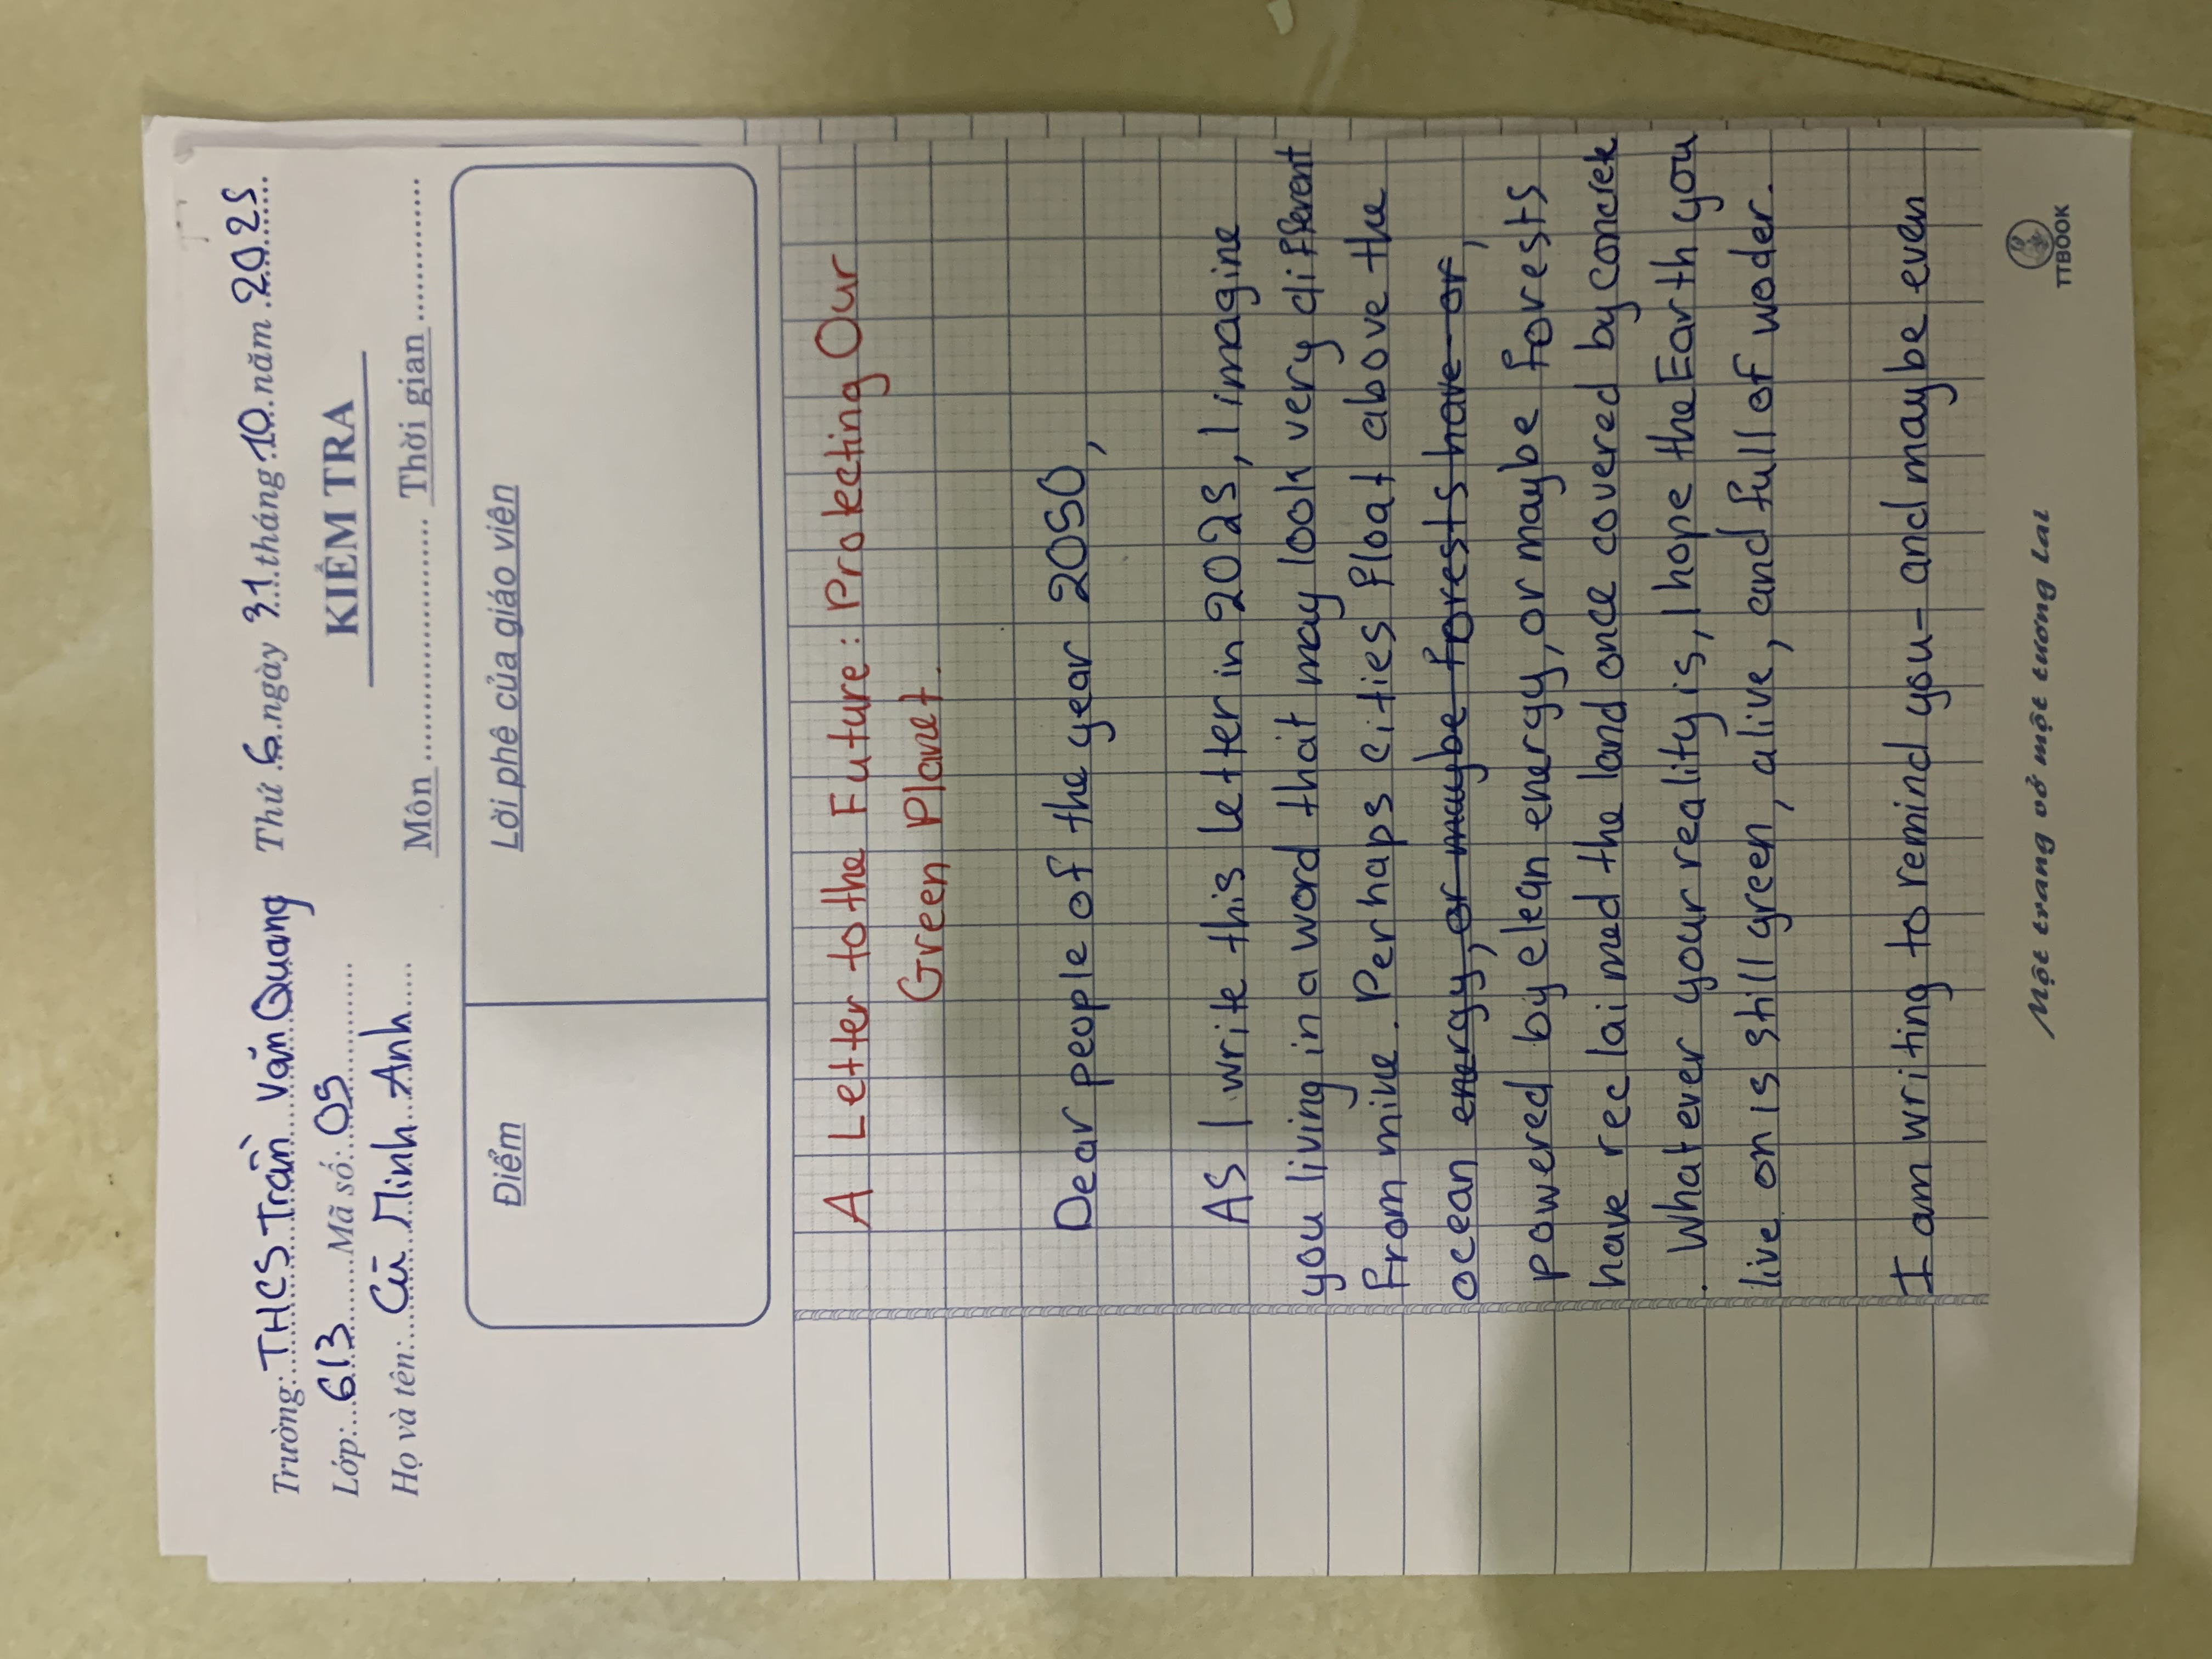 Trường: THCS Trần Văn Quang Thứ 6 ngày 31 tháng 10 năm 2025
Lớp: 6.13 Mã số: 05 KIỂM TRA
Họ và tên: Cù Minh Anh Môn Thời gian
Điểm Lời phê của giáo viên
A Letter to the Future: Protecting Our
Green Planet.
Dear people of the year 2050,
As I write this letter in 2025, I imagine
you living in a word that may look very different
from mine. Perhaps cities float above the
ocean energy, or maybe forests have or,
powered by clean energy, or maybe forests
have reclaimed the land once covered by concrete
. Whatever your reality is, I hope the Earth you
live on is still green, alive, and full of woder.
I am writing to remind you - and maybe even
Một trang vở một tương lai
TTBOOK